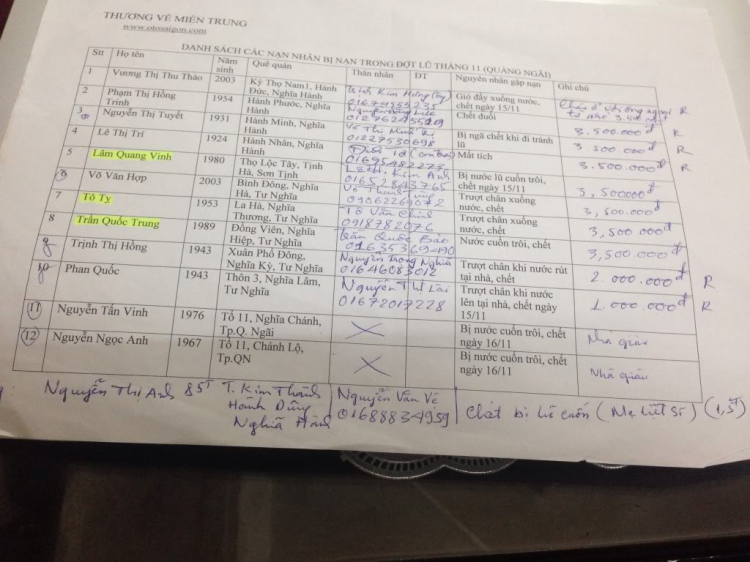 THƯƠNG VỀ MIỀN TRUNG
www.otosaigon.com
DANH SÁCH CÁC NẠN NHÂN BỊ NẠN TRONG ĐỢT LŨ THÁNG 11 (QUẢNG NGÃI)
Stt Họ tên Năm sinh Quê quán Thân nhân ĐT Nguyên nhân gặp nạn Ghi chú
1 Vương Thị Thu Thảo 2003 Kỳ Thọ Nam1, Hành Đức, Nghĩa Hành Gió đẩy xuống nước, chết ngày 15/11 R
2 Phạm Thị Hồng Trinh 1954 Hành Phước, Nghĩa Hành Chết đuối
3 Nguyễn Thị Tuyết 1931 Hành Minh, Nghĩa Hành 3.500.000đ R
4 Lê Thị Trí 1924 Hành Nhân, Nghĩa Hành 01227530698 Bị ngã chết khi đi tránh lũ 3.500.000đ R
5 Lâm Quang Vinh 1980 Thọ Lộc Tây, Tịnh Hà, Sơn Tịnh Mất tích 3.500.000đ R
6 Võ Văn Hợp 2003 Bình Đông, Nghĩa Hà, Tư Nghĩa 01652843765 Bị nước lũ cuốn trôi, chết ngày 15/11 3,500000đ
7 Tô Tỵ 1953 La Hà, Nghĩa Thương, Tư Nghĩa 09062269072 Trượt chân xuống nước, chết 3,500.000đ
8 Trần Quốc Trung 1989 Đồng Viên, Nghĩa Hiệp, Tư Nghĩa 0918782076 Trượt chân xuống nước, chết 3,500.000đ
9 Trịnh Thị Hồng 1943 Xuân Phổ Đông, Nghĩa Kỳ, Tư Nghĩa Trần Quốc Bảo 01635369490 Nước cuốn trôi, chết 3,500.000đ
10 Phan Quốc 1943 Thôn 3, Nghĩa Lâm, Tư Nghĩa Nguyễn Trọng Nghĩa 01646083012 Trượt chân khi nước rút tại nhà, chết 2.000.000đ R
Nguyễn Thị Lài 01672017228 Trượt chân khi nước lên tại nhà, chết ngày 15/11 1.000.000đ R
11 Nguyễn Tấn Vinh 1976 Tổ 11, Nghĩa Chánh, Tp.Q. Ngãi Bị nước cuốn trôi, chết ngày 16/11 Nhà giàu
12 Nguyễn Ngọc Anh 1967 Tổ 11, Chánh Lộ, Tp.QN Bị nước cuốn trôi, chết ngày 16/11 Nhà giàu
Nguyễn Thị Anh 85T T. Kim Thành Hành Dũng Nghĩa Hành Nguyễn Văn Vẽ 01688834959 Chết bị lũ cuốn (Mẹ Liệt Sĩ) (1,5T)